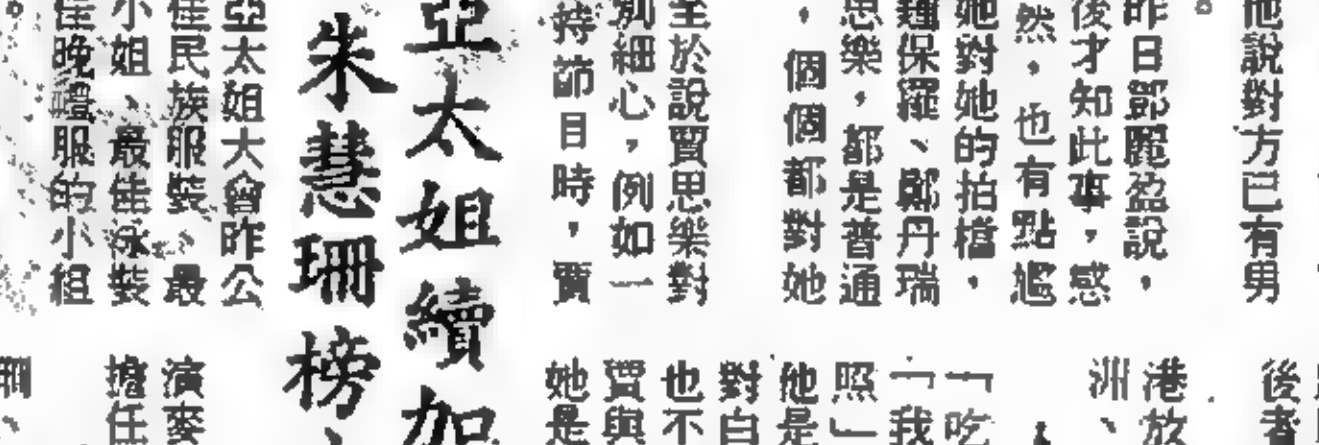 他說對方已有男
昨日鄧麗盈說，
後才知此事，感
然，也有點尷
她對她的拍檔，
鍾保羅、鄭丹瑞
思樂，都是普通
，個個都對她
至於說賈思樂對
別細心，例如一
持節目時，賈
亞太姐續加
朱慧珊榜
亞太姐大會昨公
佳民族服裝、最
小姐、最佳泳裝
佳晚禮服的小組
後者
港放
洲、
「吃
「我
照」
他是
對白
也不
賈與
她是
演麥
擔任